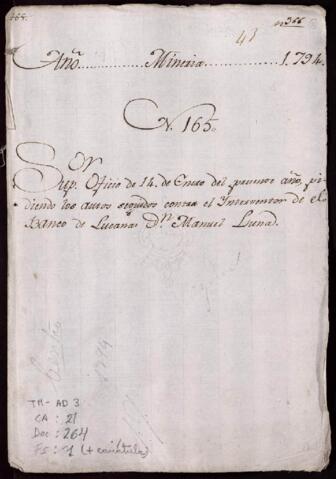 164.
366
41
Año...............Mineria...............1.794.
N. 165.
Sup. Oficio de 14. de Enero del presente año, pi-
diendo los autos seguidos contra el Interventor de el
Banco de Lucanas Dn. Manuel Luna.
1794
TM-AD 3
CA: 21
Doc: 264
Fs: 1 (+ carátula)